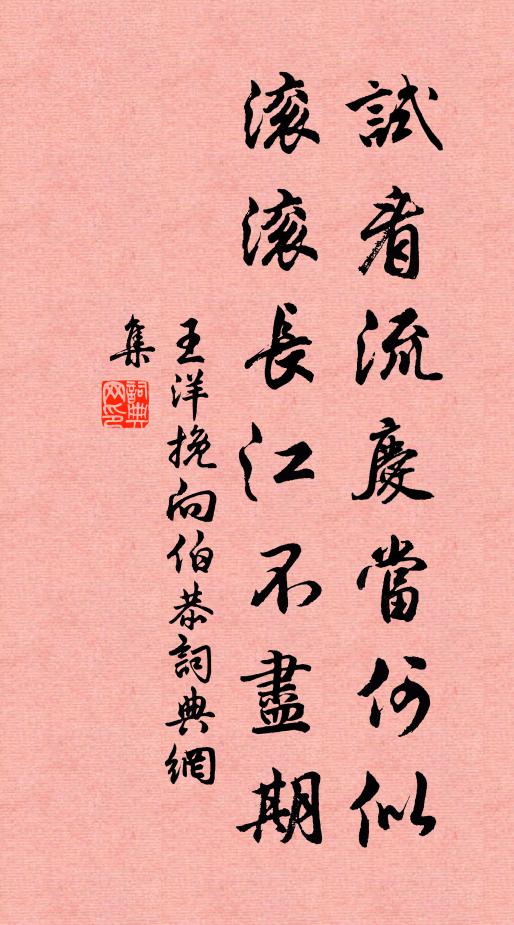 試看流慶當何似
滾滾長江不盡期
王洋挽向伯恭詞典網
集
詞典網印